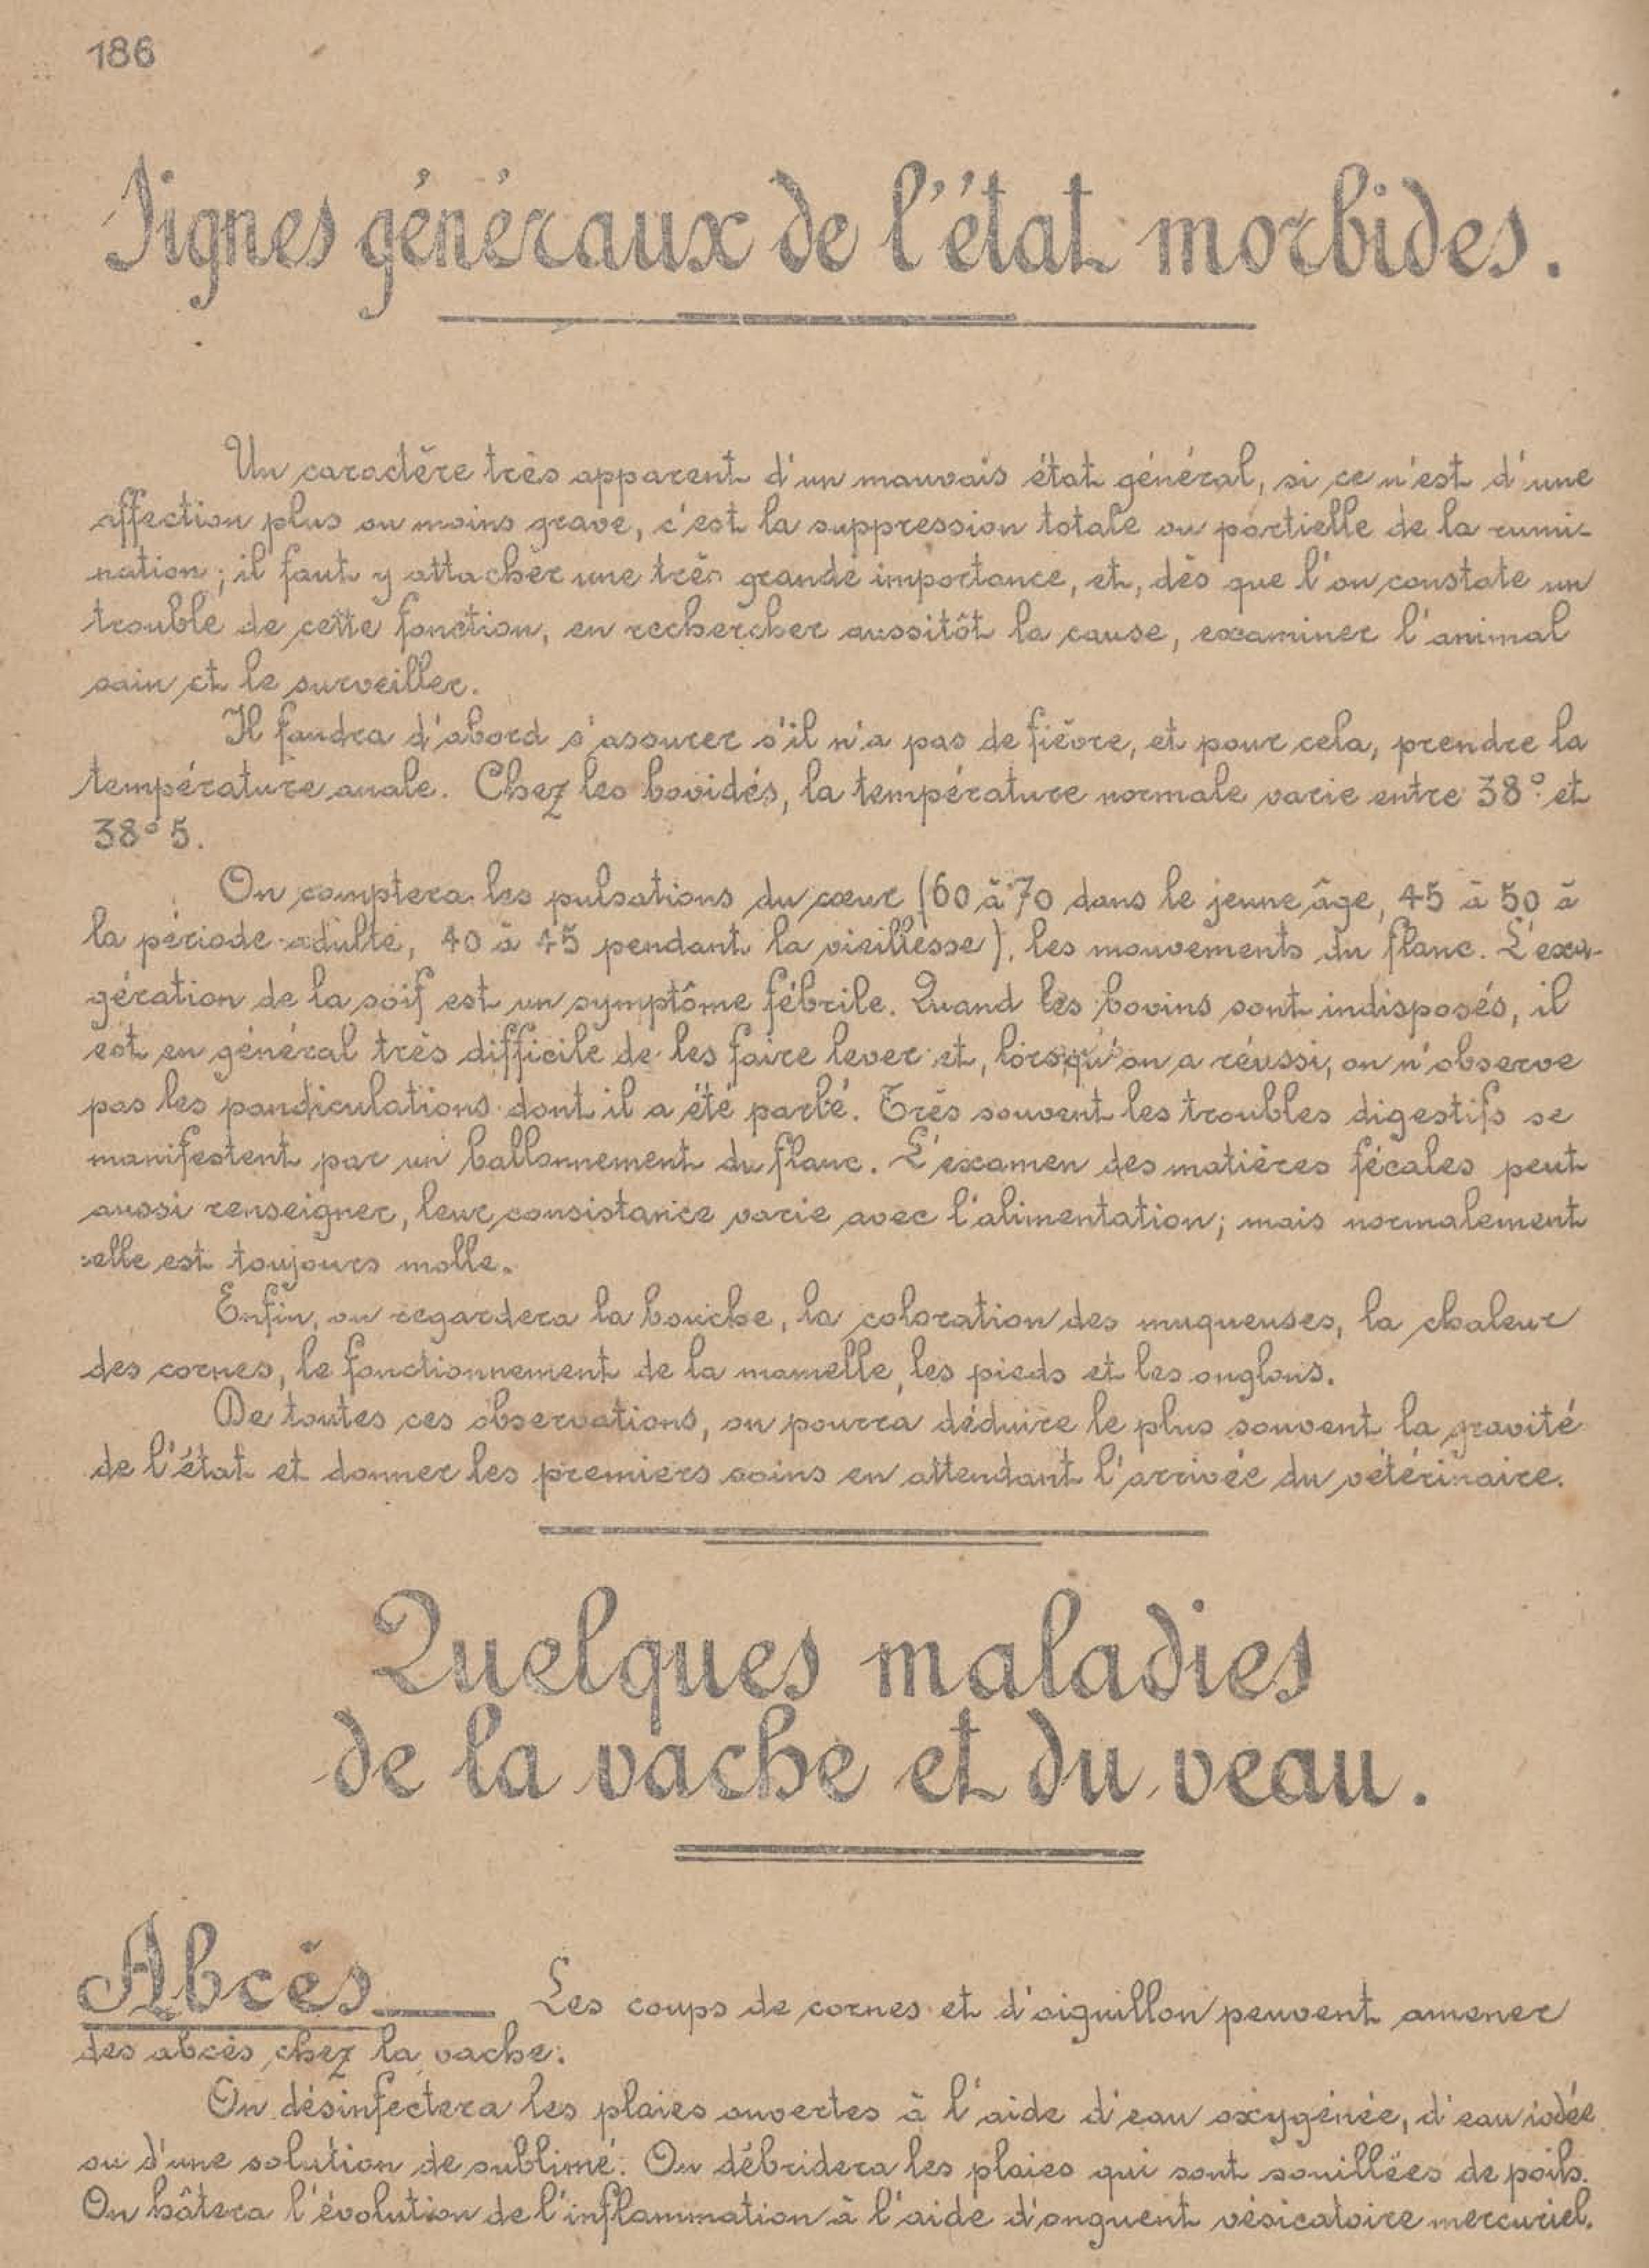 186
Signes généraux de l'état morbides.
Un caractère très apparent d'un mauvais état général, si ce n'est d'une
affection plus ou moins grave, c'est la suppression totale ou partielle de la rumi-
nation; il faut y attacher une très grande importance, et, dès que l'on constate un
trouble de cette fonction, en rechercher aussitôt la cause, examiner l'animal
sain et le surveiller.
Il faudra d'abord s'assurer s'il n'a pas de fièvre, et pour cela, prendre la
température anale. Chez les bovidés, la température normale varie entre 38° et
38°5.
On comptera les pulsations du cœur (60 à 70 dans le jeune âge, 45 à 50 à
la période adulte, 40 à 45 pendant la vieillesse), les mouvements du flanc. L'exa-
gération de la soif est un symptôme fébrile. Quand les bovins sont indisposés, il
est en général très difficile de les faire lever et, lorsqu'on a réussi, on n'observe
pas les pandiculations dont il a été parlé. Très souvent les troubles digestifs se
manifestent par un ballonnement du flanc. L'examen des matières fécales peut
aussi renseigner, leur consistance varie avec l'alimentation; mais normalement
elle est toujours molle.
Enfin, on regardera la bouche, la coloration des muqueuses, la chaleur
des cornes, le fonctionnement de la mamelle, les pieds et les onglons.
De toutes ces observations, on pourra déduire le plus souvent la gravité
de l'état et donner les premiers soins en attendant l'arrivée du vétérinaire.
Quelques maladies
de la vache et du veau.
Abcès Les coups de cornes et d'aiguillon peuvent amener
des abcès chez la vache.
On désinfectera les plaies ouvertes à l'aide d'eau oxygénée, d'eau iodée
ou d'une solution de sublimé. On débridera les plaies qui sont souillées de poils.
On hâtera l'évolution de l'inflammation à l'aide d'onguent vésicatoire mercuriel.